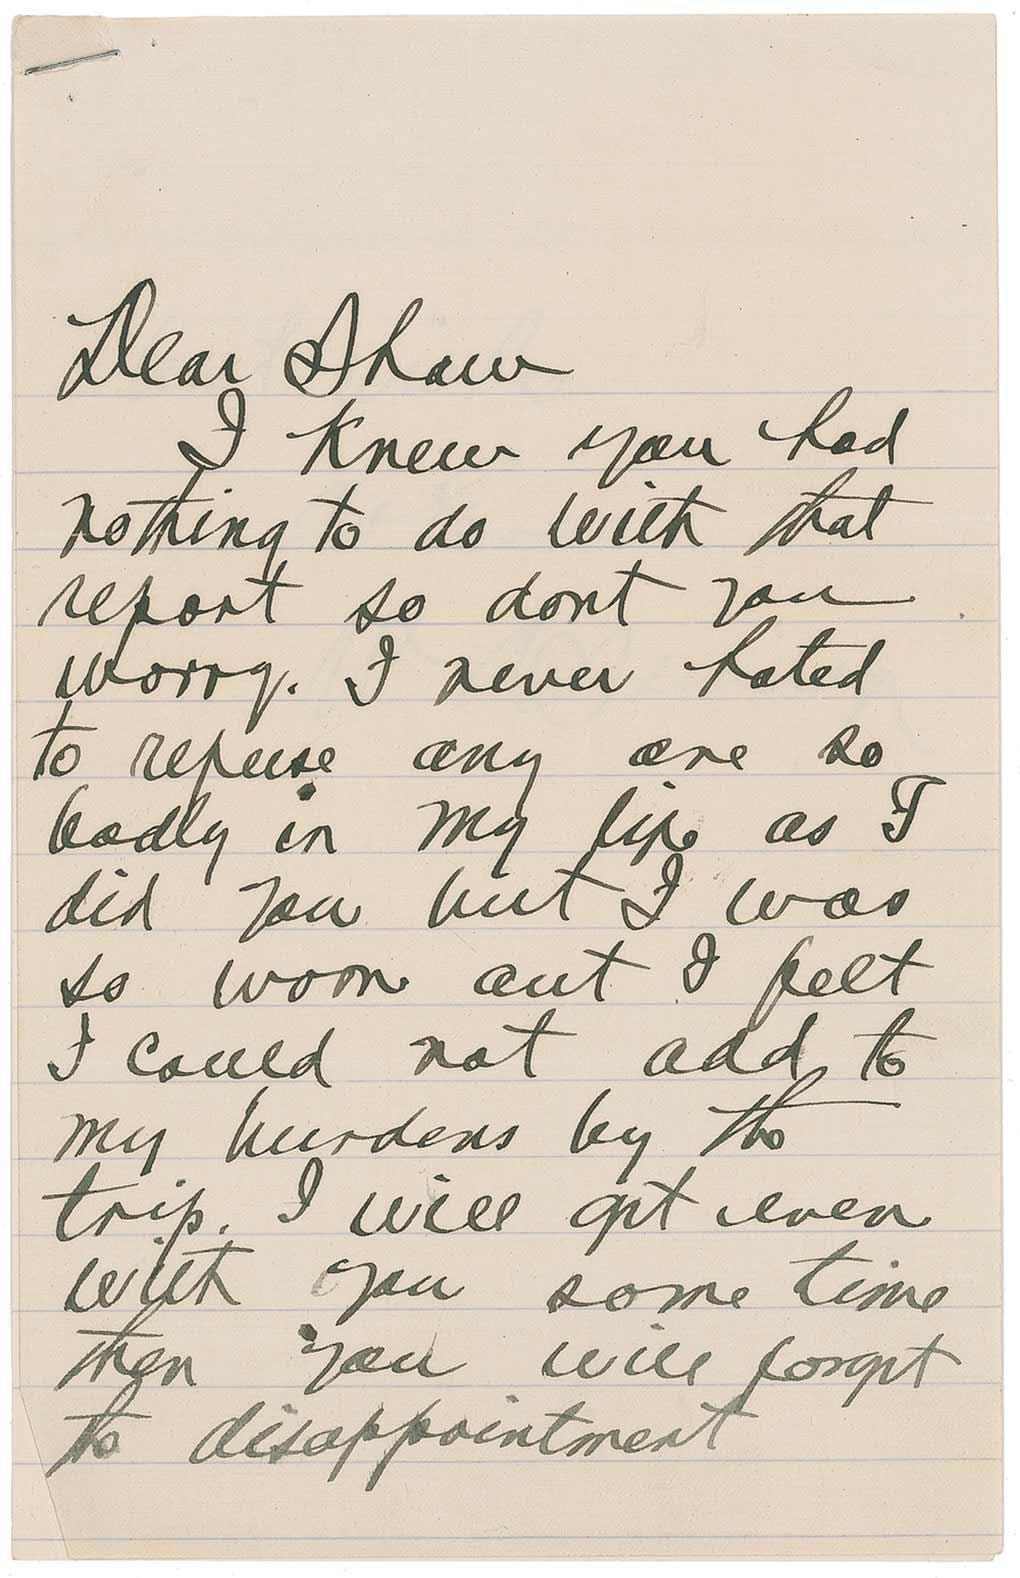 Dear Shaw
I knew you had
nothing to do with that
report so dont you
worry. I never hated
to refuse any one so
badly in my life as I
did you but I was
so worn out I felt
I could not add to
my burdens by the
trip. I will get even
with you some time
then you will forget
the disappointment